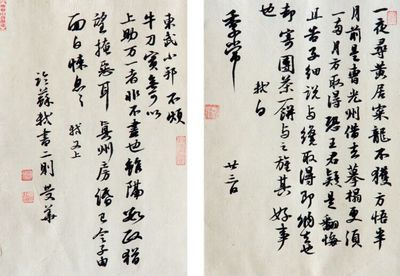 一夜尋黄居寀龍不獲方悟半
月前是曹光州借去摹榻更須
一兩月方取得恐王君疑是翻悔
且告子細說与纔取得即納去也
却寄團茶一餅与之旌其好事
也 軾白 廿三日
季常
東武小邦不煩
牛刀實無可以
上助万一者非不盡也雖隔數政猶
望掩惡耳真州房緡已令子由
面白悚息〻 軾又上
臨蘇軾書二則